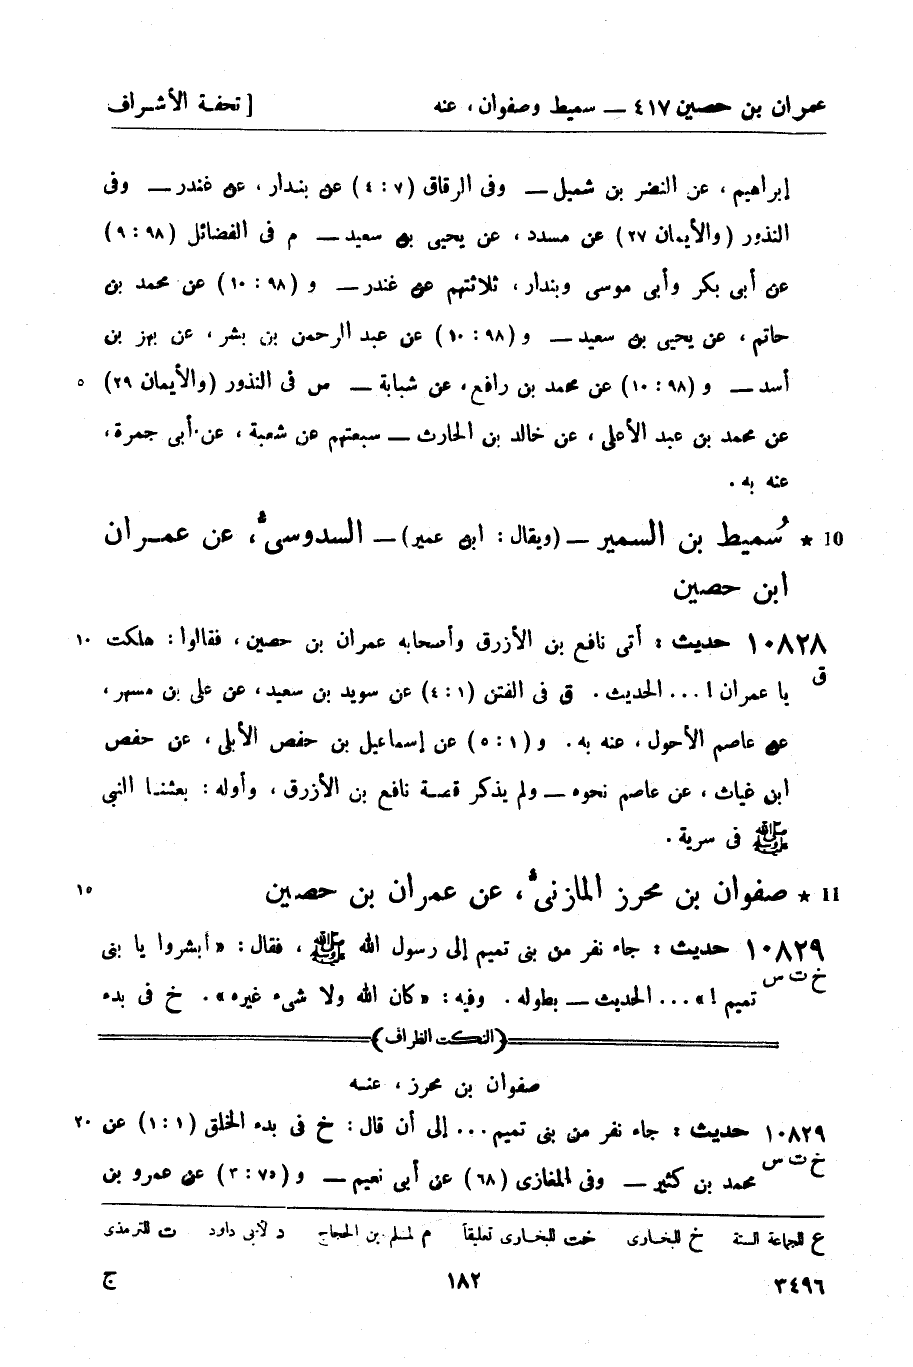 عمران بن حصين ٤١٧ — سميط وصفوان ، عنه [ تحفة الأشراف
إبراهيم ، عن النضر بن شميل — وفى الرقاق (٧ : ٤) عن بندار ، عن غندر — وفى
النذور (والأيمان ٢٧) عن مسدد ، عن يحيى بن سعيد — م فى الفضائل (٩٨ : ٩)
عن أبى بكر وأبى موسى وبندار ، ثلاثتهم عن غندر — و (٩٨ : ١٠) عن محمد بن
حاتم ، عن يحيى بن سعيد — و (٩٨ : ١٠) عن عبد الرحمن بن بشر ، عن بهز بن
أسد — و (٩٨ : ١٠) عن محمد بن رافع ، عن شبابة — س فى النذور (والأيمان ٢٩) ٥
عن محمد بن عبد الأعلى ، عن خالد بن الحارث — سبعتهم عن شعبة ، عن أبى جمرة ،
عنه به .
10 ★ سُميط بن السمير — (ويقال : ابن عمير) — السدوسى ، عن عمران
ابن حصين
١٠٨٢٨ حديث : أتى نافع بن الأزرق وأصحابه عمران بن حصين ، فقالوا : هلكت ١٠
ق
يا عمران ! ... الحديث . ق فى الفتن (١ : ٤) عن سويد بن سعيد ، عن على بن مسهر ،
عن عاصم الأحول ، عنه به . و (١ : ٥) عن إسماعيل بن حفص الأبلى ، عن حفص
ابن غياث ، عن عاصم نحوه — ولم يذكر قصة نافع بن الأزرق ، وأوله : بعثنا النبى
ﷺ فى سرية .
11 ★ صفوان بن محرز المازنى ، عن عمران بن حصين ١٥
١٠٨٢٩ حديث : جاء نفر من بنى تميم إلى رسول الله ﷺ ، فقال : «أبشروا يا بنى
خ ت س
تميم !» ... الحديث — بطوله . وفيه : «كان الله ولا شىء غيره» . خ فى بدء
(النكت الظراف)
صفوان بن محرز ، عنه
١٠٨٢٩ حديث : جاء نفر من بنى تميم ... إلى أن قال : خ فى بدء الخلق (١ : ١) عن ٢٠
خ ت س
محمد بن كثير — وفى المغازى (٦٨) عن أبى نعيم — و (٧٥ : ٣) عن عمرو بن
ع للجماعة الستة خ للبخارى خت للبخارى تعليقاً م لمسلم بن الحجاج د لأبى داود ت للترمذى
٣٤٩٦ ١٨٢ ج